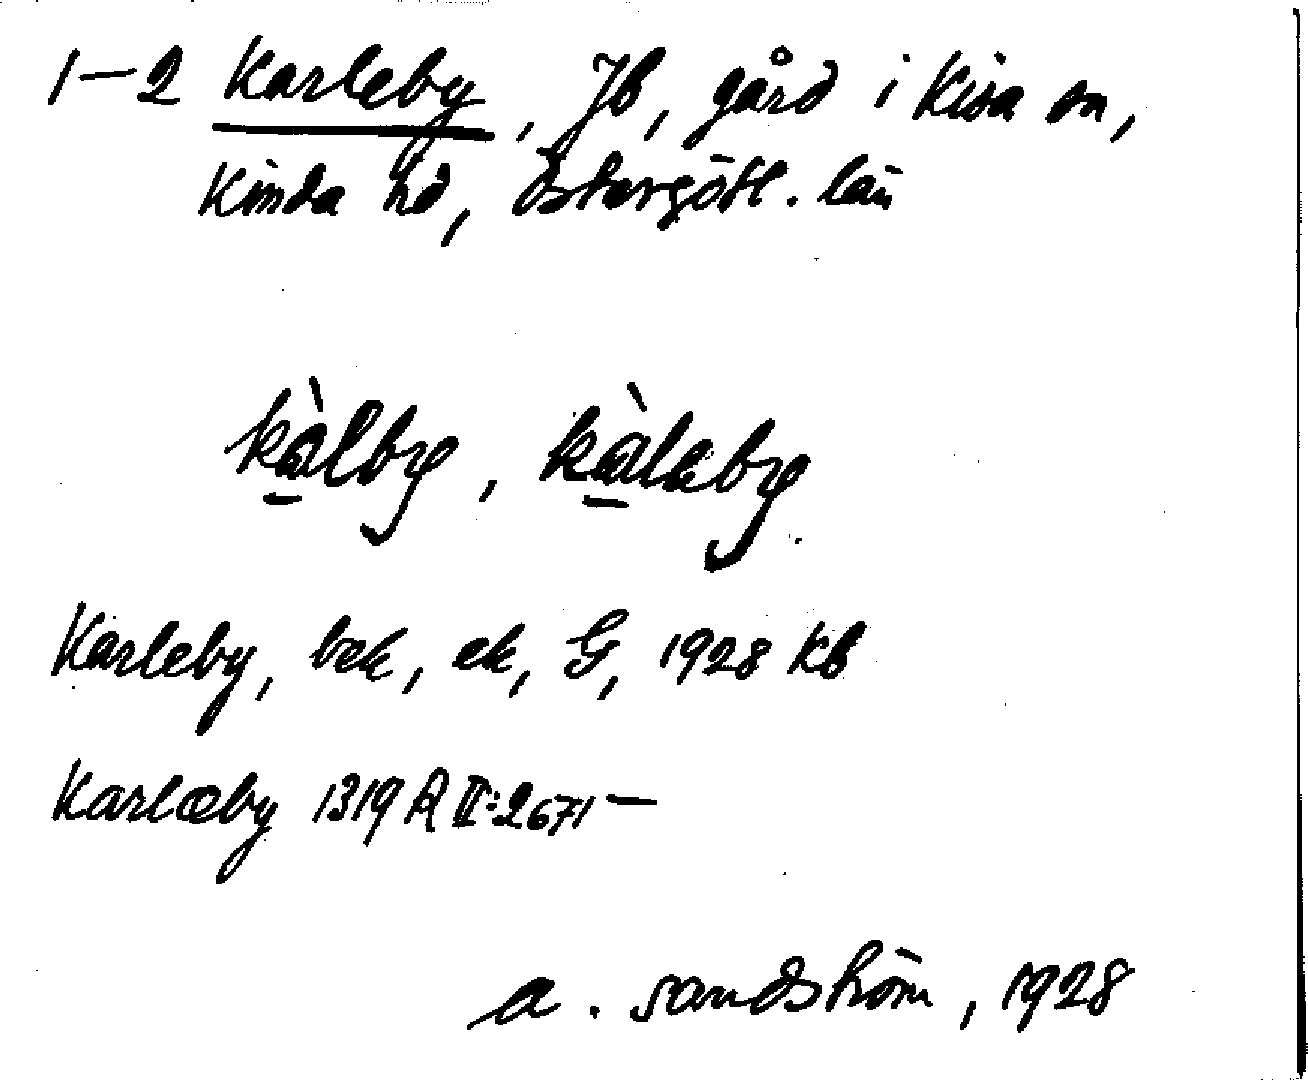 1–2 Karleby, Jb, gård i Kisa sn,
Kinda hd, Östergötl. län
kàlby, kàlaby
Karleby, bek, ek, G, 1928 Kb
Karlæby 1319 A II:2671 —
a. sandström, 1928